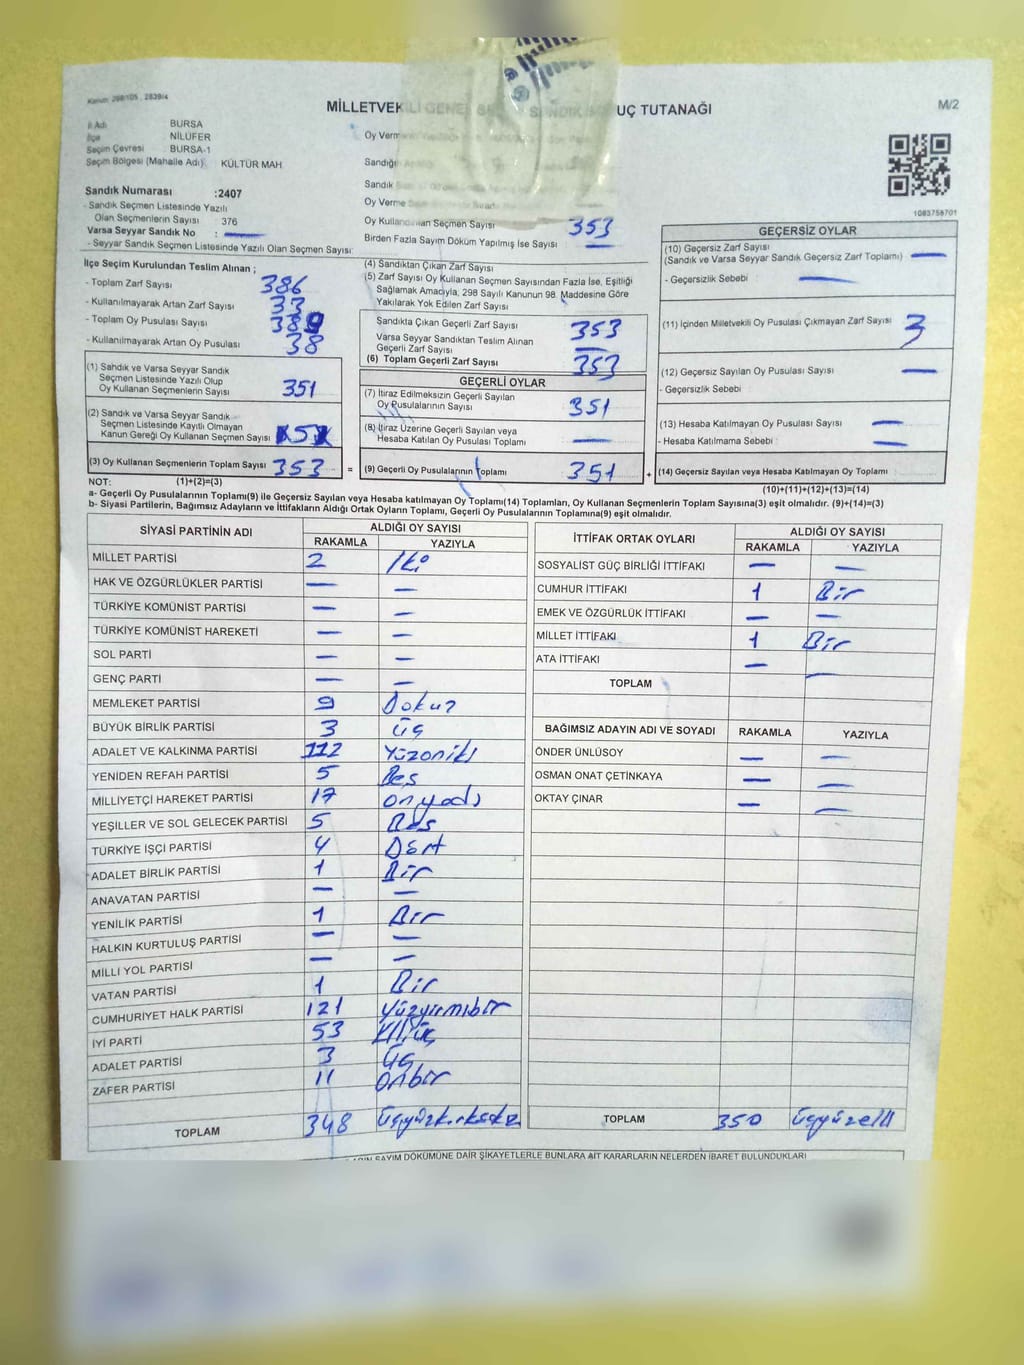 Kanun: 298/105 , 2839/4
MİLLETVEKİLİ GENEL SANDIK UÇ TUTANAĞI
M/2
İl Adı BURSA
İlçe NİLÜFER
Seçim Çevresi BURSA-1
Seçim Bölgesi (Mahalle Adı) KÜLTÜR MAH
Sandık Numarası :2407
- Sandık Seçmen Listesinde Yazılı
Olan Seçmenlerin Sayısı : 376
Varsa Seyyar Sandık No : —
- Seyyar Sandık Seçmen Listesinde Yazılı Olan Seçmen Sayısı:
Oy Verme
Sandığı
Sandık
Oy Verme
Oy Kullanan Seçmen Sayısı 353
Birden Fazla Sayım Döküm Yapılmış İse Sayısı —
1083758701
İlçe Seçim Kurulundan Teslim Alınan ;
- Toplam Zarf Sayısı 386
- Kullanılmayarak Artan Zarf Sayısı 33
- Toplam Oy Pusulası Sayısı 389
- Kullanılmayarak Artan Oy Pusulası 38
(1) Sandık ve Varsa Seyyar Sandık
Seçmen Listesinde Yazılı Olup
Oy Kullanan Seçmenlerin Sayısı 351
(2) Sandık ve Varsa Seyyar Sandık
Seçmen Listesinde Kayıtlı Olmayan
Kanun Gereği Oy Kullanan Seçmen Sayısı
(3) Oy Kullanan Seçmenlerin Toplam Sayısı 353 =
(4) Sandıktan Çıkan Zarf Sayısı
(5) Zarf Sayısı Oy Kullanan Seçmen Sayısından Fazla İse, Eşitliği
Sağlamak Amacıyla, 298 Sayılı Kanunun 98. Maddesine Göre
Yakılarak Yok Edilen Zarf Sayısı
Sandıkta Çıkan Geçerli Zarf Sayısı 353
Varsa Seyyar Sandıktan Teslim Alınan
Geçerli Zarf Sayısı —
(6) Toplam Geçerli Zarf Sayısı 353
GEÇERLİ OYLAR
(7) İtiraz Edilmeksizin Geçerli Sayılan
Oy Pusulalarının Sayısı 351
(8) İtiraz Üzerine Geçerli Sayılan veya
Hesaba Katılan Oy Pusulası Toplamı —
(9) Geçerli Oy Pusulalarının Toplamı 351 +
GEÇERSİZ OYLAR
(10) Geçersiz Zarf Sayısı
(Sandık ve Varsa Seyyar Sandık Geçersiz Zarf Toplamı) —
- Geçersizlik Sebebi —
(11) İçinden Milletvekili Oy Pusulası Çıkmayan Zarf Sayısı 3
(12) Geçersiz Sayılan Oy Pusulası Sayısı —
- Geçersizlik Sebebi
(13) Hesaba Katılmayan Oy Pusulası Sayısı —
- Hesaba Katılmama Sebebi —
(14) Geçersiz Sayılan veya Hesaba Katılmayan Oy Toplamı
NOT: (1)+(2)=(3)
(10)+(11)+(12)+(13)=(14)
a- Geçerli Oy Pusulalarının Toplamı(9) ile Geçersiz Sayılan veya Hesaba katılmayan Oy Toplamı(14) Toplamları, Oy Kullanan Seçmenlerin Toplam Sayısına(3) eşit olmalıdır. (9)+(14)=(3)
b- Siyasi Partilerin, Bağımsız Adayların ve İttifakların Aldığı Ortak Oyların Toplamı, Geçerli Oy Pusulalarının Toplamına(9) eşit olmalıdır.
SİYASİ PARTİNİN ADI ALDIĞI OY SAYISI
RAKAMLA YAZIYLA
MİLLET PARTİSİ 2 İki
HAK VE ÖZGÜRLÜKLER PARTİSİ — —
TÜRKİYE KOMÜNİST PARTİSİ — —
TÜRKİYE KOMÜNİST HAREKETİ — —
SOL PARTİ — —
GENÇ PARTİ — —
MEMLEKET PARTİSİ 9 Dokuz
BÜYÜK BİRLİK PARTİSİ 3 Üç
ADALET VE KALKINMA PARTİSİ 112 Yüzoniki
YENİDEN REFAH PARTİSİ 5 Beş
MİLLİYETÇİ HAREKET PARTİSİ 17 Onyedi
YEŞİLLER VE SOL GELECEK PARTİSİ 5 Beş
TÜRKİYE İŞÇİ PARTİSİ 4 Dört
ADALET BİRLİK PARTİSİ 1 Bir
ANAVATAN PARTİSİ — —
YENİLİK PARTİSİ 1 Bir
HALKIN KURTULUŞ PARTİSİ — —
MİLLİ YOL PARTİSİ — —
VATAN PARTİSİ 1 Bir
CUMHURİYET HALK PARTİSİ 121 Yüzyirmibir
İYİ PARTİ 53 Elliüç
ADALET PARTİSİ 3 Üç
ZAFER PARTİSİ 11 Onbir
TOPLAM 348 Üçyüzkırksekiz
İTTİFAK ORTAK OYLARI ALDIĞI OY SAYISI
RAKAMLA YAZIYLA
SOSYALİST GÜÇ BİRLİĞİ İTTİFAKI — —
CUMHUR İTTİFAKI 1 Bir
EMEK VE ÖZGÜRLÜK İTTİFAKI — —
MİLLET İTTİFAKI 1 Bir
ATA İTTİFAKI — —
TOPLAM
BAĞIMSIZ ADAYIN ADI VE SOYADI RAKAMLA YAZIYLA
ÖNDER ÜNLÜSOY — —
OSMAN ONAT ÇETİNKAYA — —
OKTAY ÇINAR — —
TOPLAM 350 Üçyüzelli
SAYIM DÖKÜMÜNE DAİR ŞİKAYETLERLE BUNLARA AİT KARARLARIN NELERDEN İBARET BULUNDUKLARI